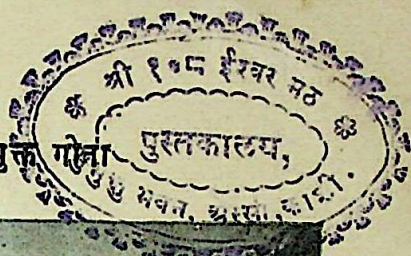 श्री १०८ ईश्वर मठ
पुस्तकालय,
मुमुक्षु भवन, अस्सी, काशी.
गीता